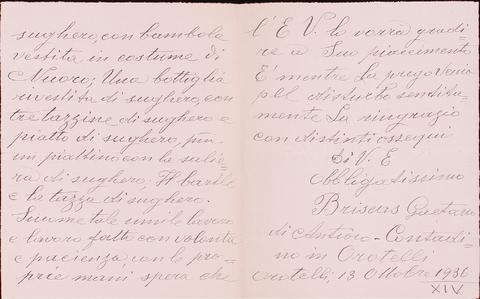 sughero, con bambola
vestita in costume di
Nuoro; Una bottiglia
rivestita di sughero, con
tre tazzine di sughero e
piatto di sughero, più
un piattino con la salie=
ra di sughero; Il barile
e la tazza di sughero.
Siccome tale umile lavoro
è lavoro fatto con volontà
e pacienza con le pro=
prie mani, spera che
l'E V. lo vorrà gradi=
re a Suo piacimento
E' mentre La prego Venia
pel disturbo sentita=
mente La ringrazio
con distinti ossequi
Di V. E
Obbligatissimo
Gaetano
di Antico - Contadi=
no in Orotelli
Orotelli, 13 Ottobre 1936
XIV